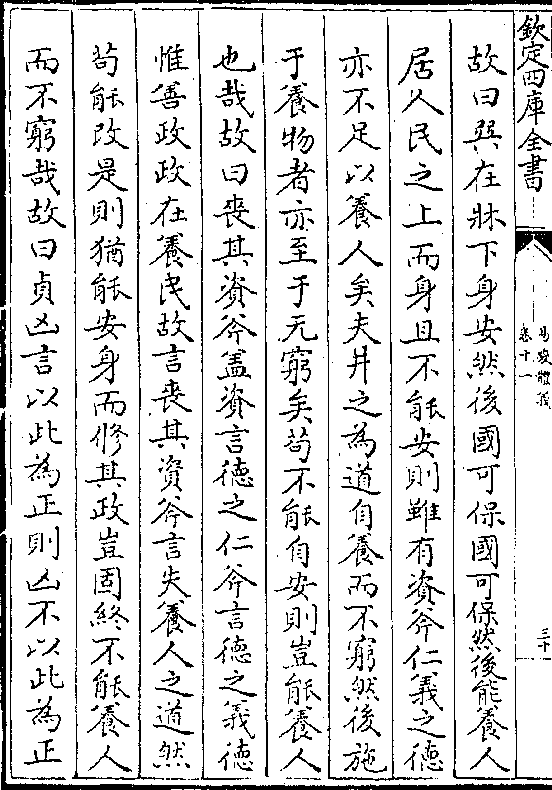 欽定四庫全書
易變體義
卷十一
三十
故曰巽在牀下身安然後國可保國可保然後能養人
居人民之上而身且不能安則雖有資斧仁義之德
亦不足以養人矣夫井之為道自養而不窮然後施
于養物者亦至于无窮矣苟不能自安則豈能養人
也哉故曰喪其資斧蓋資言德之仁斧言德之義德
惟善政政在養民故言喪其資斧言失養人之道然
苟能改是則猶能安身而修其政豈固終不能養人
而不窮哉故曰貞凶言以此為正則凶不以此為正